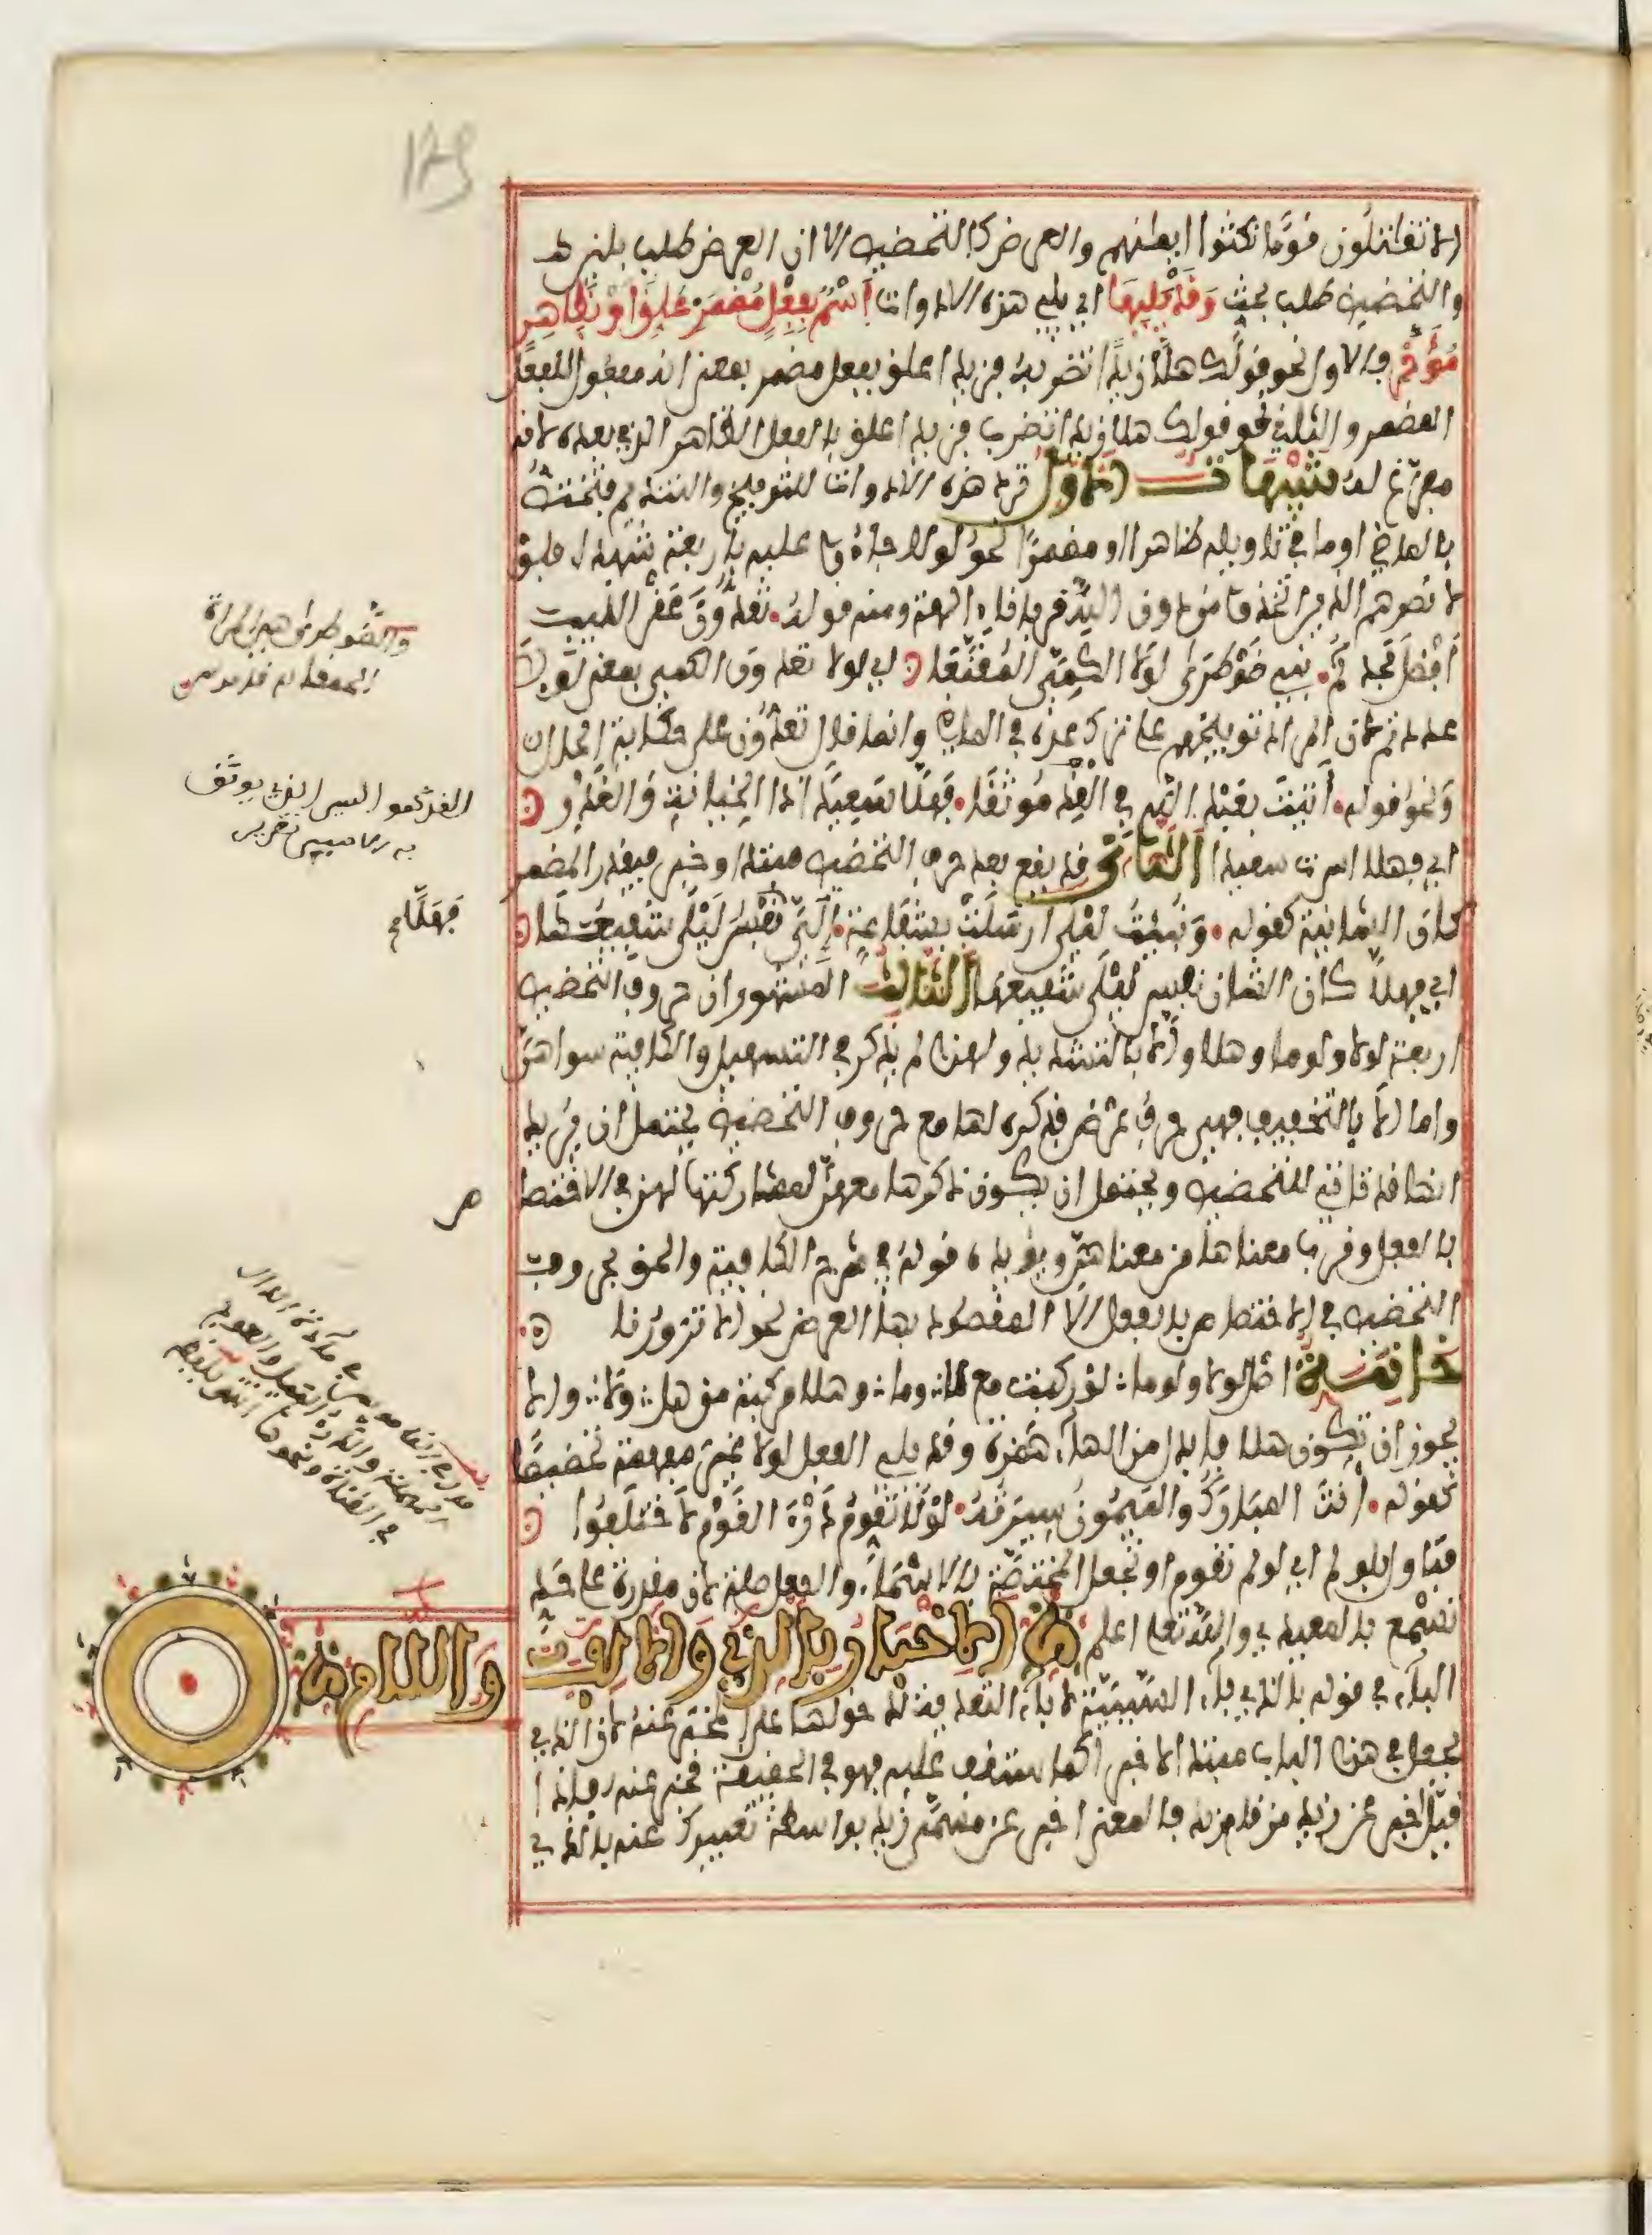 الا تقاتلون قوما نكثوا ايمانهم والعرض كالتحضيض الا ان العرض طلب بلين
والتحضيض طلب بحث وقد يليها اي يلي هذه الادوات اسم بفعل مضمر علق او بظاهر
مؤخر فالاول نحو قولك هلا زيدا تضربه فزيدا علق بفعل مضمر بمعنى انه مفعول للفعل
المضمر والثاني نحو قولك هلا زيدا تضرب فزيدا علق بالفعل الظاهر الذي بعده لانه
مفرغ له تنبيهات الاول ترد هذه الادوات للتوبيخ والتنديم فتختص
بالماضي او ما في تاويله ظاهرا او مضمرا نحو لولا جاءوا عليه باربعة شهداء فلولا
نصرهم الذين اتخذوا من دون الله قربانا الهة ومنه قوله تعدون عقر النيب
افضل مجدكم بني ضوطرى لولا الكمي المقنعا اي لولا تعدون الكمي بمعنى لولا
عددتم لان المراد توبيخهم على ترك عده في الماضي وانما قال تعدون على حكاية الحال
ونحو قوله اتيت بعبد الله في القد موثقا فهلا سعيدا ذا الخيانة والغدر
اي فهلا اسرت سعيدا الثاني قد يقع بعد حرف التحضيض مبتدا وخبر فيقدر المضمر
كان الشانية كقوله ونبئت ليلى ارسلت بشفاعة الي فهلا نفس ليلى شفيعها
اي فهلا كان الشان نفس ليلى شفيعها الثالث المشهور ان حروف التحضيض
اربعة لولا ولوما وهلا والا بالتشديد ولهذا لم يذكر في التسهيل والكافية سواهن
واما الا بالتخفيف فهي حرف عرض فذكره لها مع حروف التحضيض يحتمل ان يريد
انها قد تاتي للتحضيض ويحتمل ان يكون ذكرها معهن لمشاركتها لهن في الاختصاص
بالفعل وقرب معناها من معناهن ويؤيده قوله في شرح الكافية والحق بحروف
التحضيض في الاختصاص بالفعل الا المقصود بها العرض نحو الا تزورنا
خاتمة اصل لولا ولوما لو ركبت مع لا وما وهلا مركبة من هل ولا والا
يجوز ان تكون هلا فابدل من الهاء همزة وقد يلي الفعل لولا غير مفهمة تحضيضا
كقوله انت المبارك والميمون سيرته لولا تقوم درء القوم لاختلفوا
فتاول بلو لم اي لو لم تقوم او تجعل المختصة بالاسماء والفعل صلة لان مقدرة على حد
تسمع بالمعيدي والله تعالى اعلم الاخبار بالذي والالف
واللام
الباء في قوله بالذي باء السببية لا باء التعدية لدخولها على المخبر عنه لان الذي
يجعل في هذا الباب مبتدا لا خبرا كما ستقف عليه فهو في الحقيقة مخبر عنه فاذا
قيل اخبر عن زيد من قام زيد فالمعنى اخبر عن مسمى زيد بواسطة تعبيرك عنه بالذي
فهلا